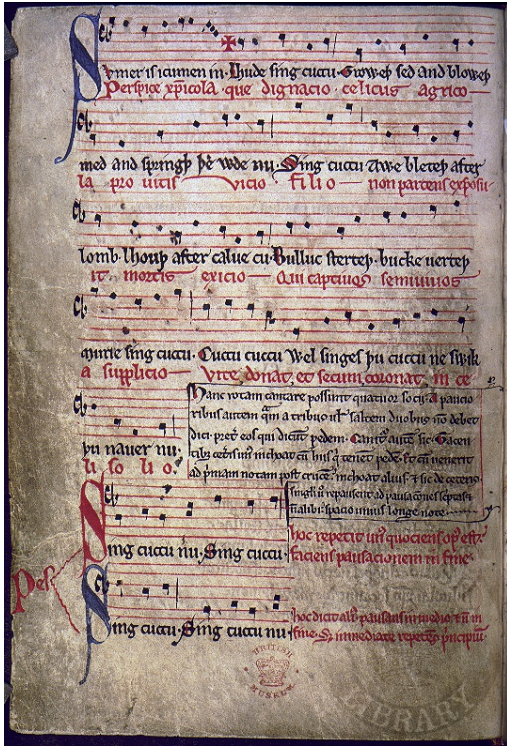 Svmer is icumen in · Lhude sing cuccu · Groweþ sed and bloweþ
Perspice xpicola · que dignacio · celicus agrico
med and springþ þe wde nu · Sing cuccu Awe bleteþ after
la pro uitis vicio filio non parcens exposu
lomb · lhouþ after calue cu · Bulluc sterteþ · bucke uerteþ
it mortis exicio Qui captiuos semiuiuos
murie sing cuccu · Cuccu cuccu Wel singes þu cuccu ne swik
a supplicio Vite donat, et secum coronat, in ce
þu nauer nu ·
li so li o ·
Hanc rotam cantare possunt quatuor socij · A paucio
ribus autem a tribus saltem duobus non debet
dici · preter eos qui dicunt pedem · Canitur autem sic · Tacen
tibus ceteris unus inchoat cum hiis qui tenent pedem · Et cum uenerit
ad primam notam post crucem · inchoat alius · et sic de ceteris
singuli uero repausent ad pausaciones scriptas
non alibi · spacio unius longe note
Sing cuccu nu · Sing cuccu ·
hoc repetit unus quociens opus est ·
faciens pausacionem in fine ·
Pes
Sing cuccu · Sing cuccu nu ·
hoc dicit alius · pausans in medio et non in
fine · Set immediate repetens principium ·
BRITISH
MUSEUM
LIBRARY